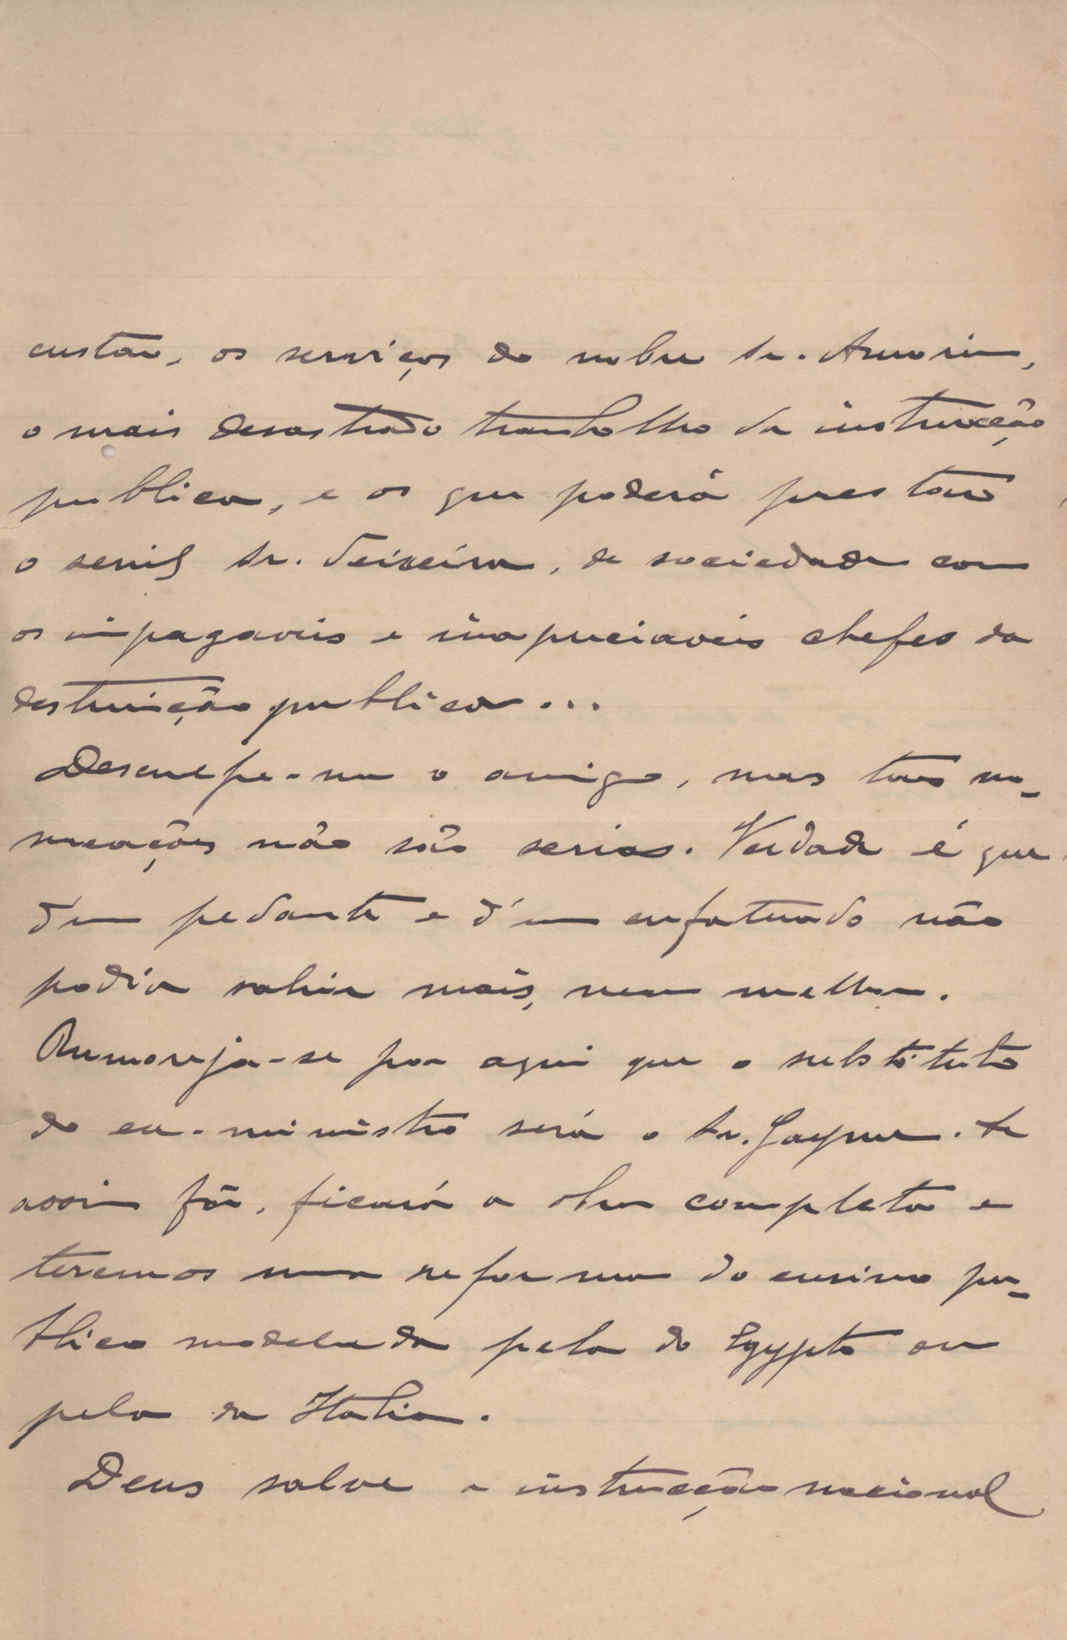 custar, os serviços do nobre Sr. Amorim,
o mais desastrado trambolho da instrucção
publica, e os que poderá prestar
o senil Sr. Teixeira, de sociedade com
os impagaveis e inapreciaveis chefes da
destruição publica...
Desculpe-me o amigo, mas taes no-
meações não são serias. Verdade é que
d'um pedante e d'um enfatuado não
podia sahir mais, nem melhor.
Rumoreja-se por aqui que o substituto
do ex-ministro será o Sr. Se
assim fôr, ficará a obra completa e
teremos uma reforma do ensino pu-
blico modelada pela do Egypto ou
pela da Italia.
Deus salve a instrucção nacional